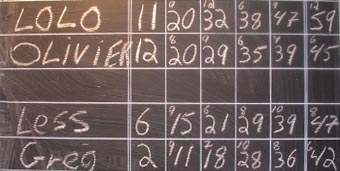 LOLO 11 9 20 12 32 6 38 9 47 12 59
OLIVIER 12 8 20 9 29 6 35 4 39 6 45
Less 6 9 15 6 21 8 29 10 39 8 47
Greg 2 9 11 7 18 10 28 8 36 6 42